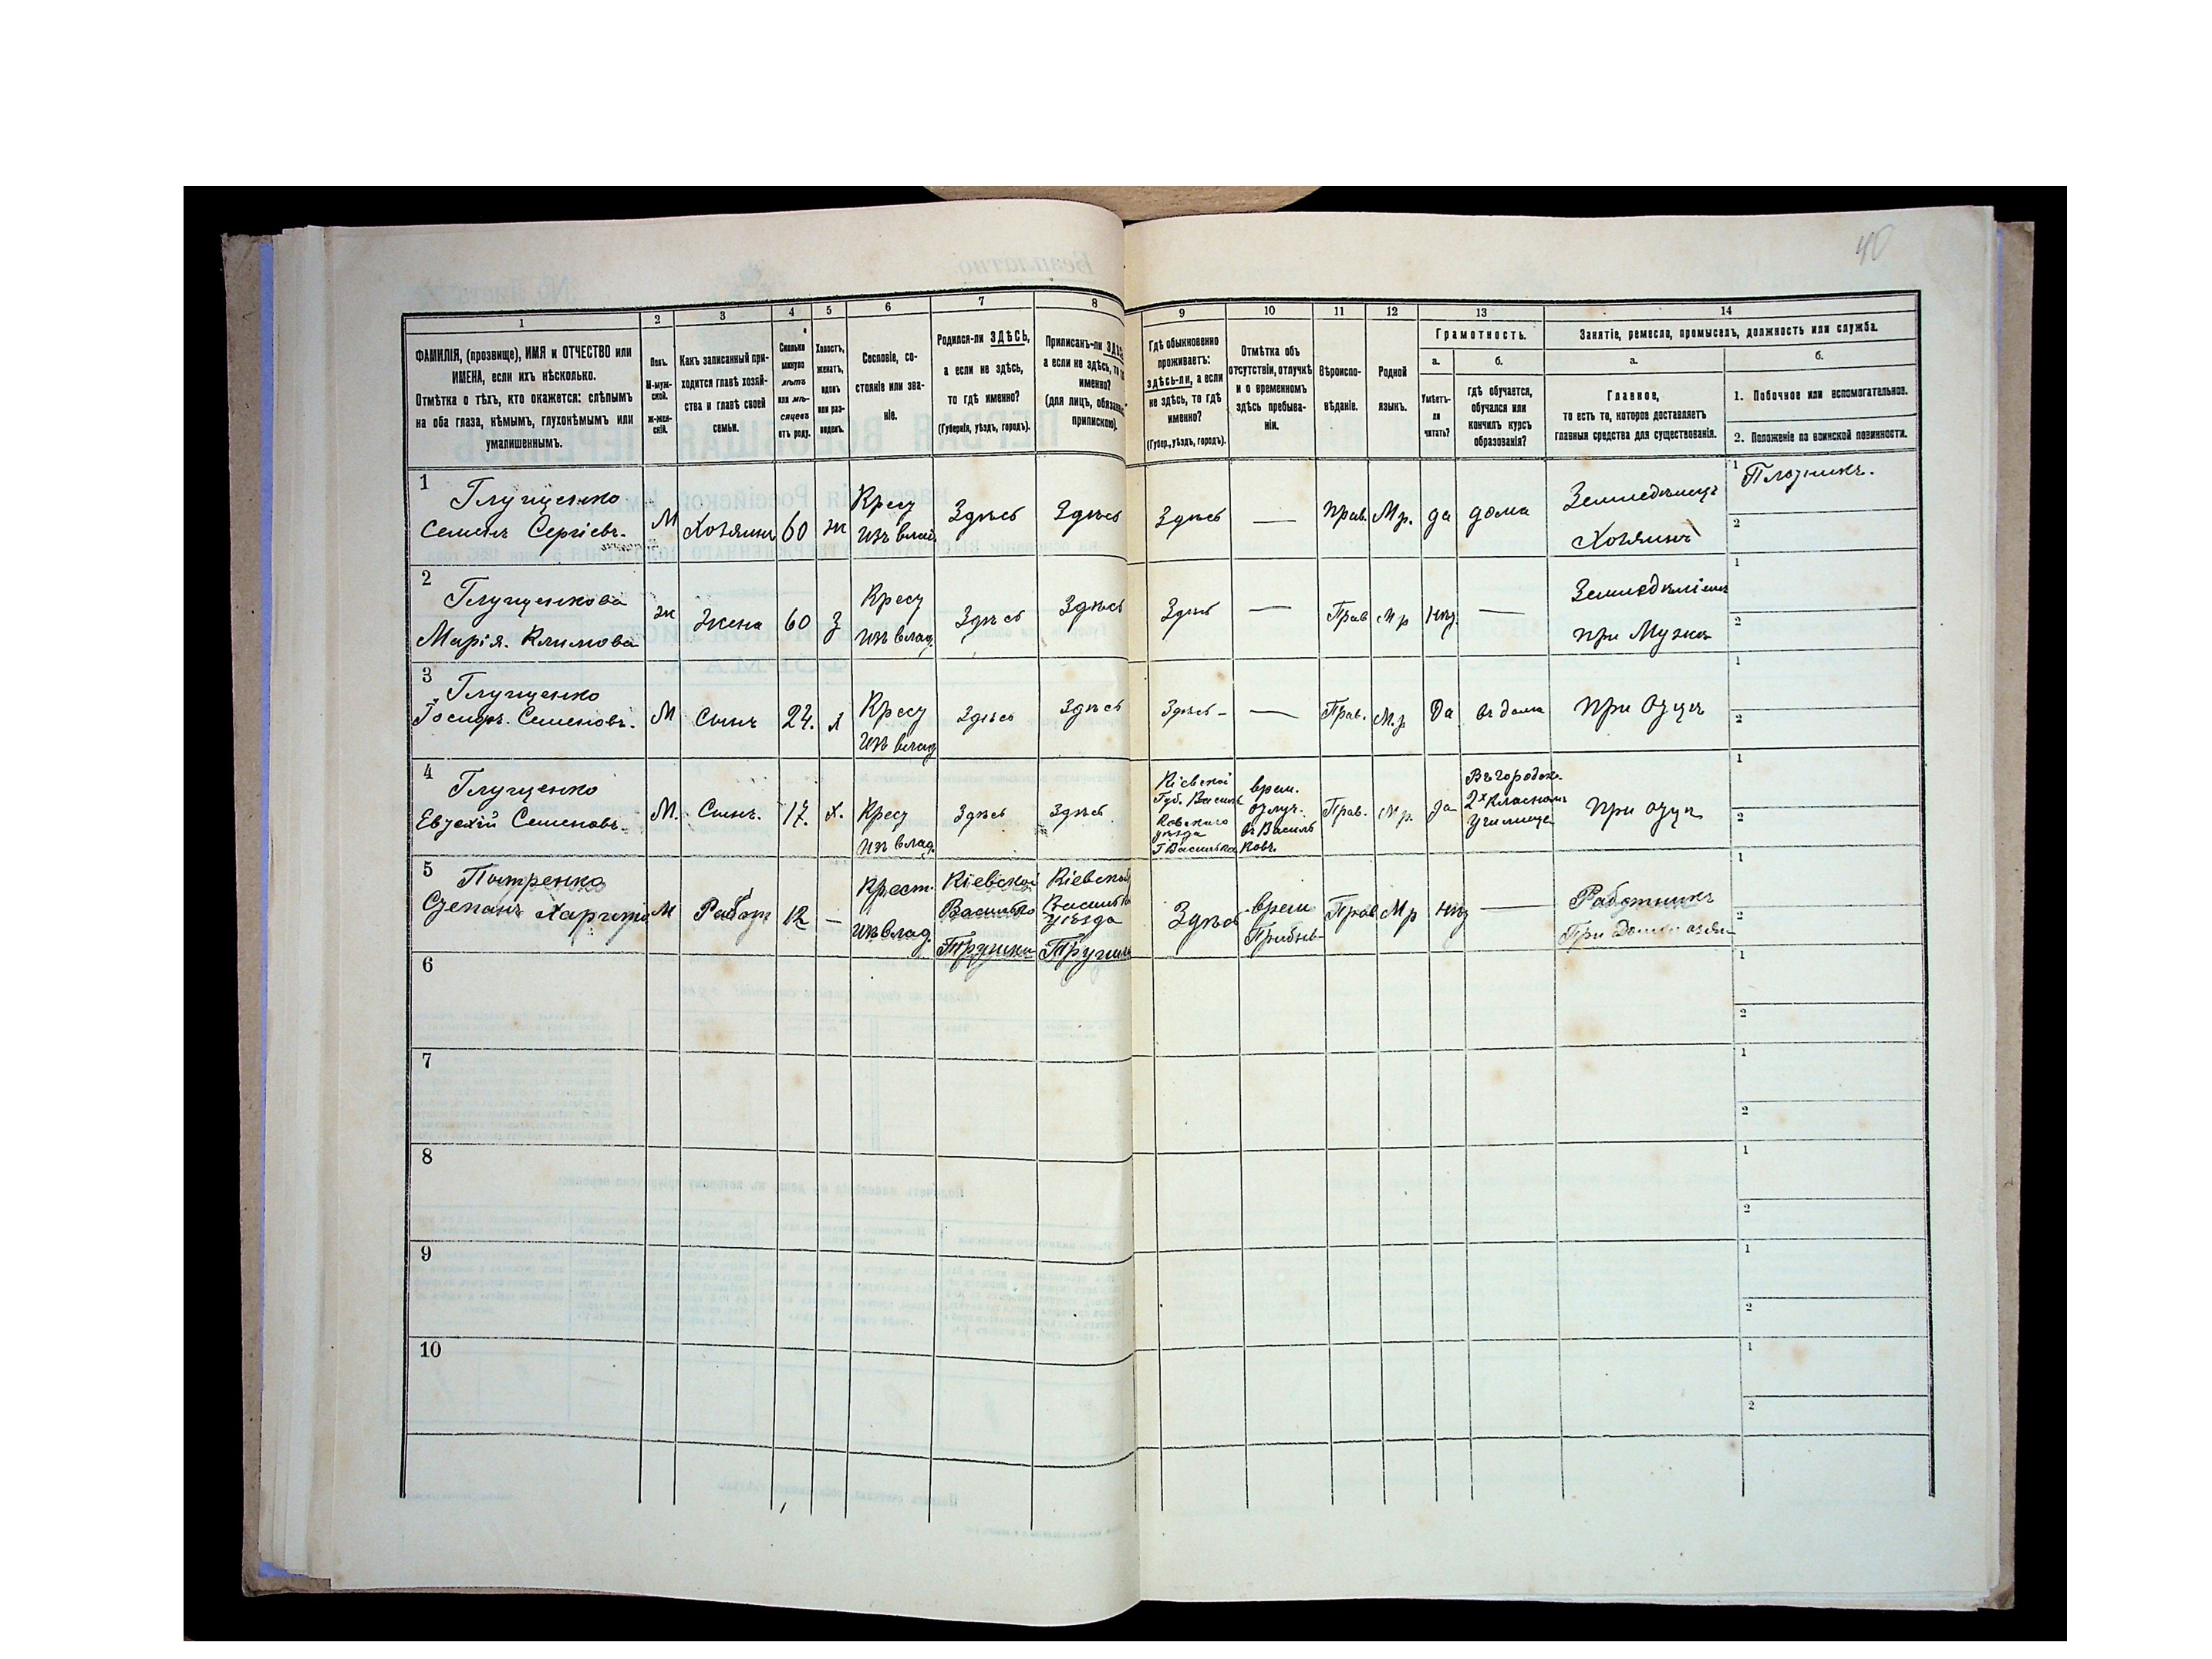 40
1
2
3
4
5
6
7
8
9
10
11
12
13
14
ФАМИЛІЯ, (прозвище), ИМЯ и ОТЧЕСТВО или
ИМЕНА, если ихъ нѣсколько.
Отмѣтка о тѣхъ, кто окажется: слѣпымъ
на оба глаза, нѣмымъ, глухонѣмымъ или
умалишеннымъ.
Полъ.
М-муж-
ской.
Ж-жен-
скій.
Какъ записанный при-
ходится главѣ хозяй-
ства и главѣ своей
семьи.
Сколько
минуло
лѣтъ
или мѣ-
сяцевъ
отъ роду.
Холостъ,
женатъ,
вдовъ
или раз-
веденъ.
Сословіе, со-
стояніе или зва-
ніе.
Родился-ли ЗДѢСЬ,
а если не здѣсь,
то гдѣ именно?
(Губернія, уѣздъ, городъ).
Приписанъ-ли
а если не здѣсь, то
именно?
(для лицъ,
припискою).
Гдѣ обыкновенно
проживаетъ:
здѣсь-ли, а если
не здѣсь, то гдѣ
именно?
(Губер., уѣздъ, городъ).
Отмѣтка объ
отсутствіи, отлучкѣ
и о временномъ
здѣсь пребыва-
ніи.
Вѣроиспо-
вѣданіе.
Родной
языкъ.
Грамотность.
а.
Умѣетъ-
ли
читать?
б.
гдѣ обучается,
обучался или
кончилъ курсъ
образованія?
Занятіе, ремесло, промыселъ, должность или служба.
а.
Главное,
то есть то, которое доставляетъ
главныя средства для существованія.
б.
1. Побочное или вспомогательное.
2. Положеніе по воинской повинности.
1
Глущенко
Семенъ Сергіевъ.
М
Хозяинъ
60
ж
Крест
изъ влад.
Здѣсь
Здѣсь
Здѣсь
—
Прав.
М р.
да
дома
Земледѣлецъ
Хозяинъ
1
Плотникъ.
2
2
Глущенкова
Марія. Климова
ж
Жена
60
з
Крест
изъ влад.
Здѣсь
Здѣсь
Здѣсь
—
Прав
М р
нѣт
—
при Мужѣ
1
2
3
Глущенко
Іосифъ. Семеновъ.
М
Сынъ
24.
х
Крест
изъ влад
Здѣсь
Здѣсь
Здѣсь
—
Прав.
М. р
Да
при Отцѣ
1
2
4
Глущенко
Евтихій Семеновъ.
М.
Сынъ.
17.
х.
Крест
изъ влад.
Здѣсь
Здѣсь
Кіевской
Губ. Василь
ковскаго
уѣзда
Г Василько
врем.
отлуч.
въ Василь
ковъ
Прав.
М р.
да
2х класномъ
училище
при отцѣ
1
2
5
Петренко
Степанъ
М
Работ
12
—
Крест.
изъ влад.
Кіевской
Василько
Кіевской
Василько
уѣзда
Здѣсь
врем
Прибыв-
Прав
М р
нѣт
—
Работникъ
1
2
6
1
2
7
1
2
8
1
2
9
1
2
10
1
2